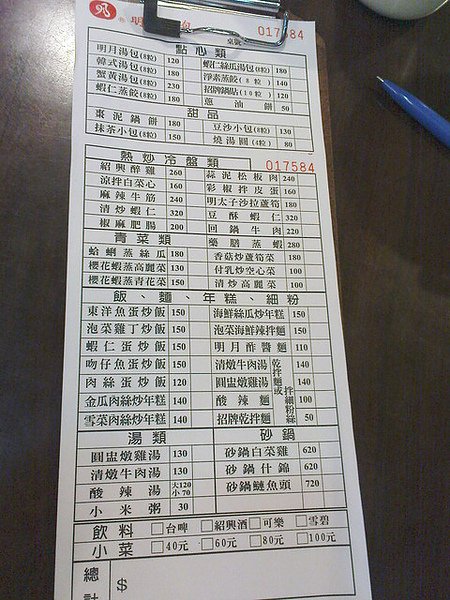 明
桌號
017584
點心類
明月湯包(8粒) 120 蝦仁絲瓜湯包(8粒) 180
韓式湯包(8粒) 180 淨素蒸餃(8粒) 140
蟹黃湯包(8粒) 230 招牌鍋貼(10粒) 120
蝦仁蒸餃(8粒) 180 蔥油餅 50
甜品
棗泥鍋餅 180 豆沙小包(8粒) 130
抹茶小包(8粒) 150 燒湯圓(4粒) 80
熱炒冷盤類 017584
紹興醉雞 260 蒜泥松板肉 240
涼拌白菜心 160 彩椒拌皮蛋 160
麻辣牛筋 240 明太子沙拉蘆筍 180
清炒蝦仁 320 豆酥蝦仁 320
椒麻肥腸 200 回鍋牛肉 220
青菜類 藥膳蒸蝦 280
蛤蜊蒸絲瓜 180 香菇炒蘆筍 180
櫻花蝦蒸高麗菜 130 付乳炒空心菜 100
櫻花蝦蒸青花菜 150 清炒高麗菜 100
飯、麵、年糕、細粉
東洋魚蛋炒飯 150 海鮮絲瓜炒年糕 150
泡菜雞丁炒飯 150 泡菜海鮮辣拌麵 150
蝦仁蛋炒飯 150 明月酢醬麵 110
吻仔魚蛋炒飯 150 清燉牛肉湯 乾拌麵或拌細粉絲 140
肉絲蛋炒飯 120 圓盅燉雞湯 140
金瓜肉絲炒年糕 140 酸辣麵 100
雪菜肉絲炒年糕 140 招牌乾拌麵 50
湯類 砂鍋
圓盅燉雞湯 130 砂鍋白菜雞 620
清燉牛肉湯 130 砂鍋什錦 620
酸辣湯 大120 小70 砂鍋鰱魚頭 720
小米粥 30
飲料 □台啤 □紹興酒 □可樂 □雪碧
小菜 □40元 □60元 □80元 □100元
總計 $